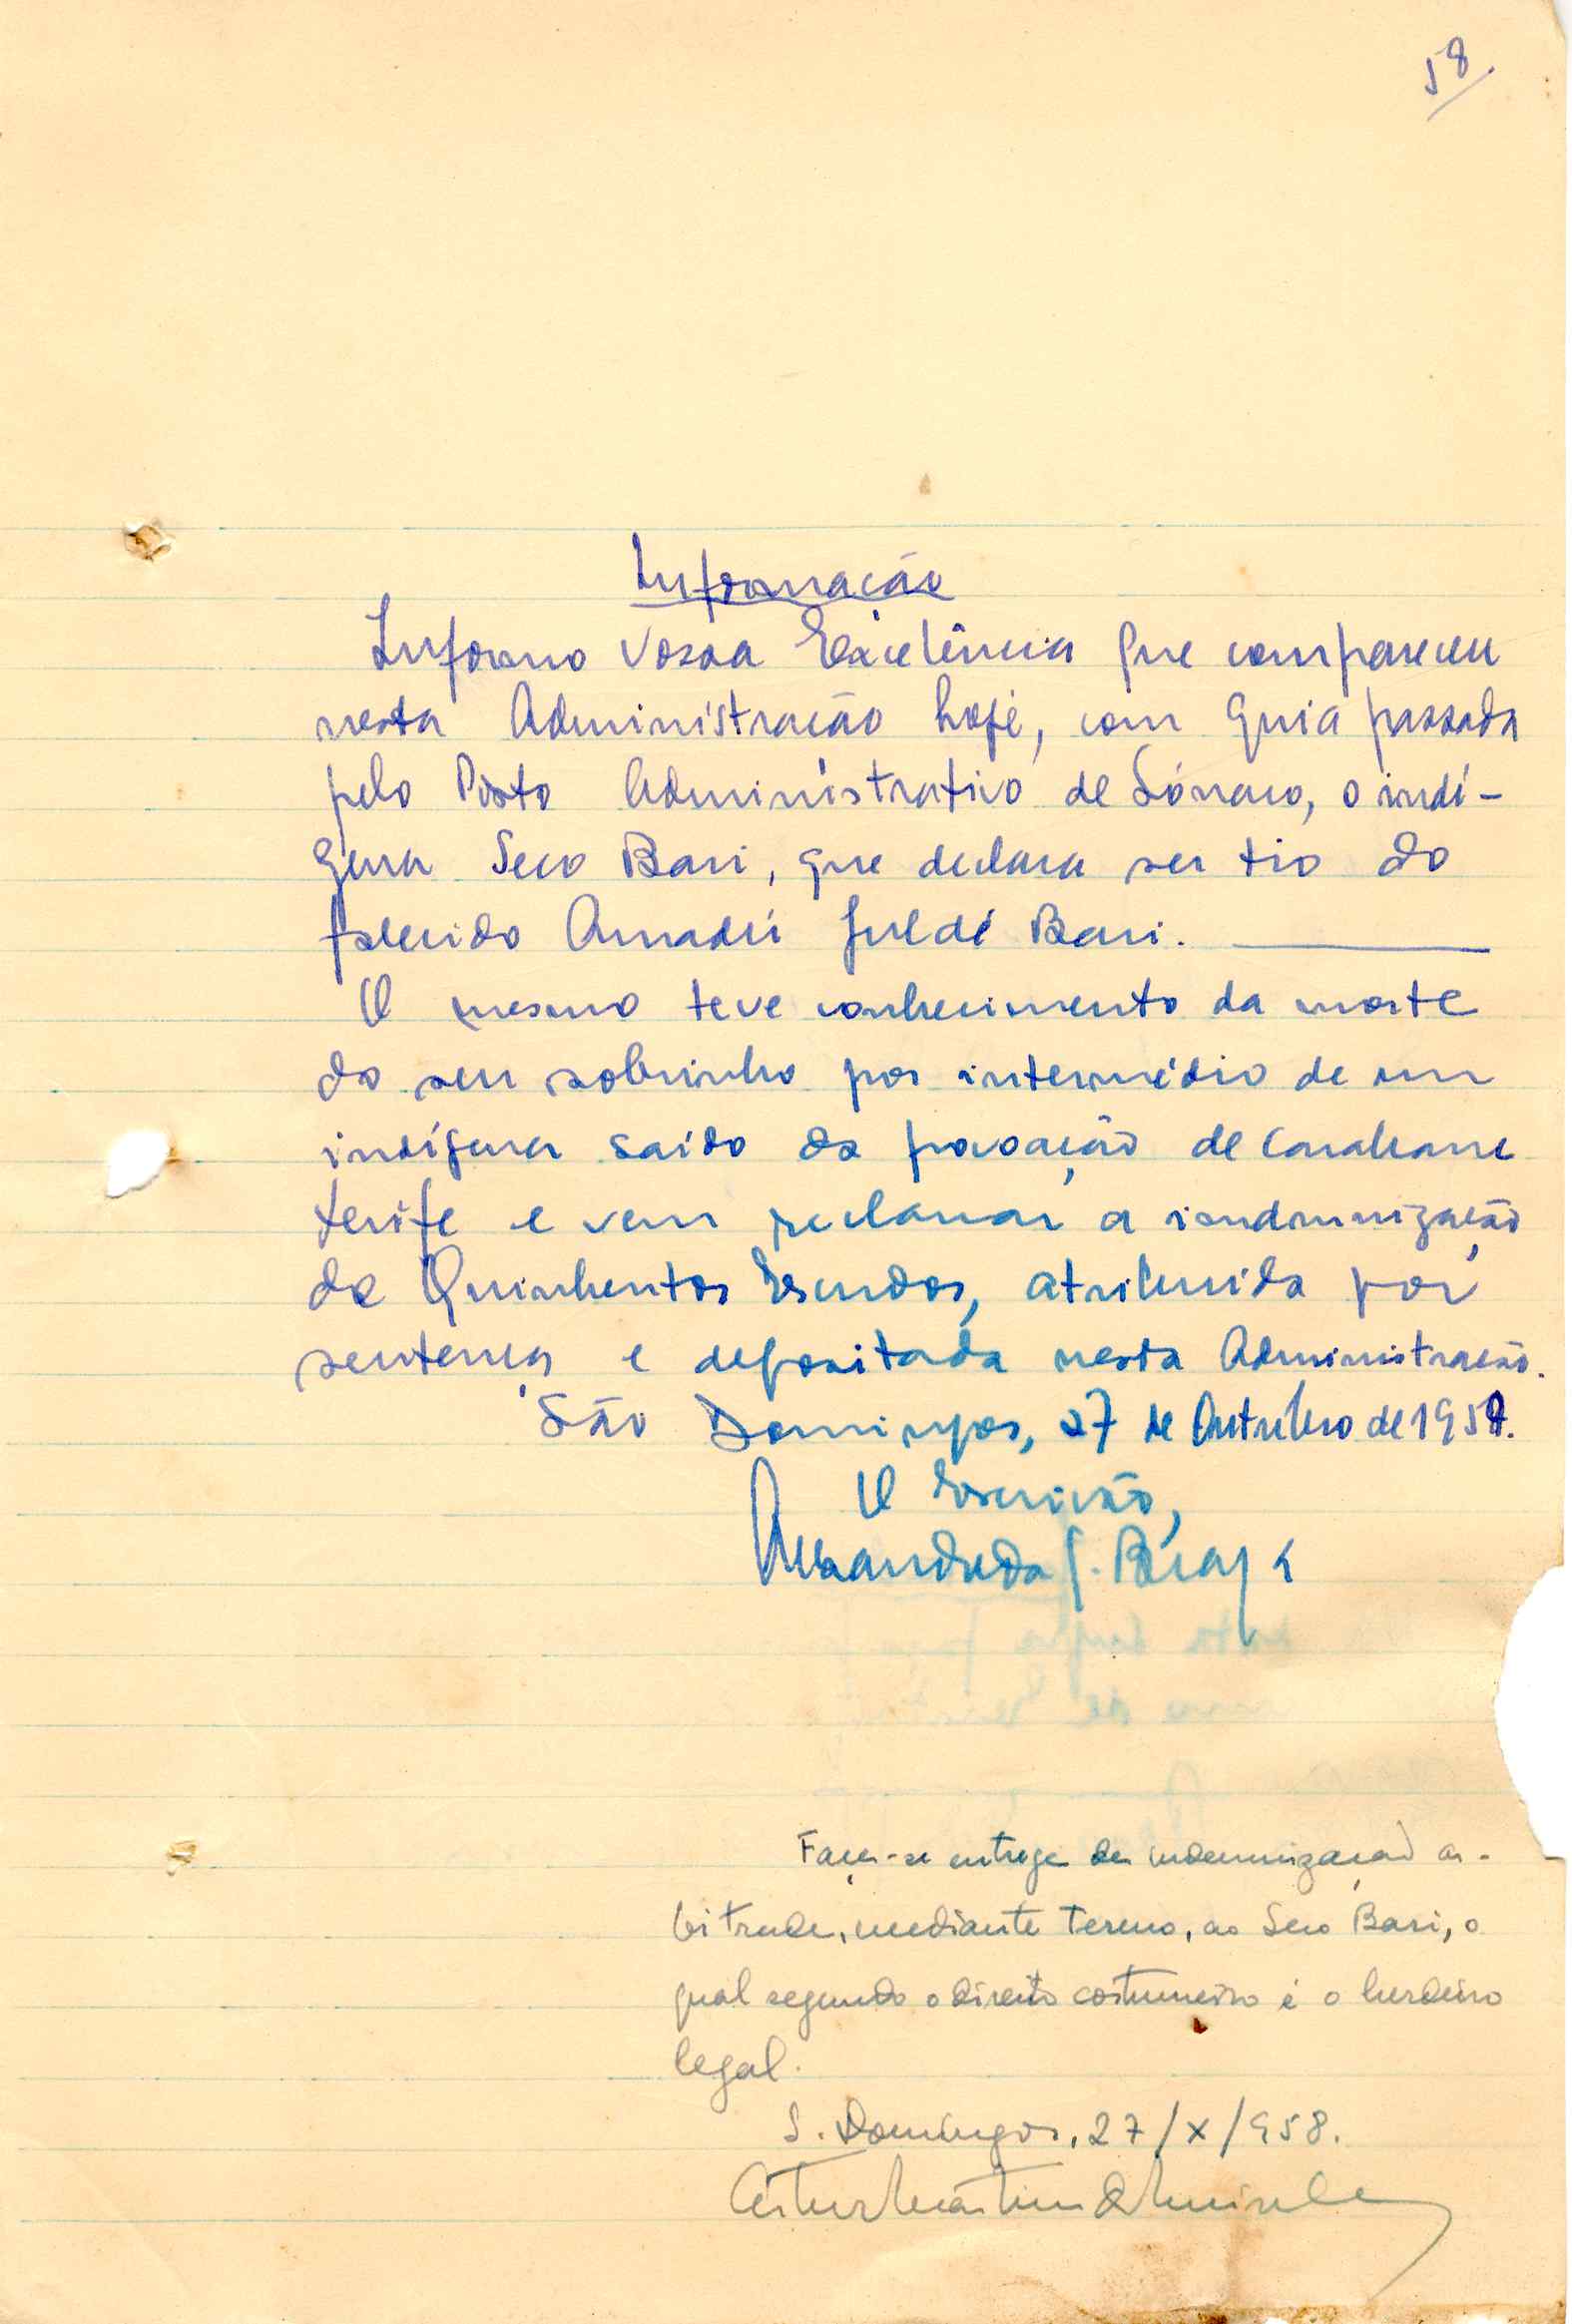 58.
Informação
Informo Vossa Excelência que compareceu
nesta Administração hoje, com guia passada
pelo Posto Administrativo de Sónaco, o indí-
gena Seco Bari, que declara ser tio do
falecido Amadú Juldé Bari.
O mesmo teve conhecimento da morte
do seu sobrinho por intermédio de um
indígena saído da povoação de
terife e vem reclamar a
de Quinhentos Escudos, atribuida por
sentença e depositada nesta Administração.
São Domingos, 27 de Outubro de 1958.
O Escrivão,
Faça-se entrega da indemnização ar-
bitrada, mediante termo, ao Seco Bari, o
qual segundo o direito costumeiro é o herdeiro
legal.
S. Domingos, 27/X/958.